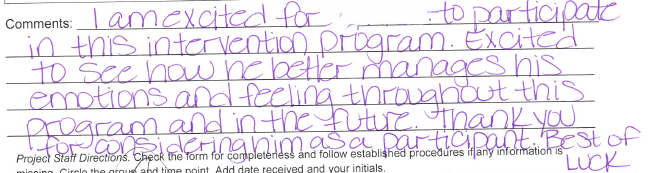 Comments: I am excited for to participate
in this intervention program. Excited
to see how he better manages his
emotions and feeling throughout this
program and in the future. Thank you
for considering him as a participant. Best of
Project Staff Directions. Check the form for completeness and follow established procedures if any information is
LUCK
missing. Circle the group and time point. Add date received and your initials.